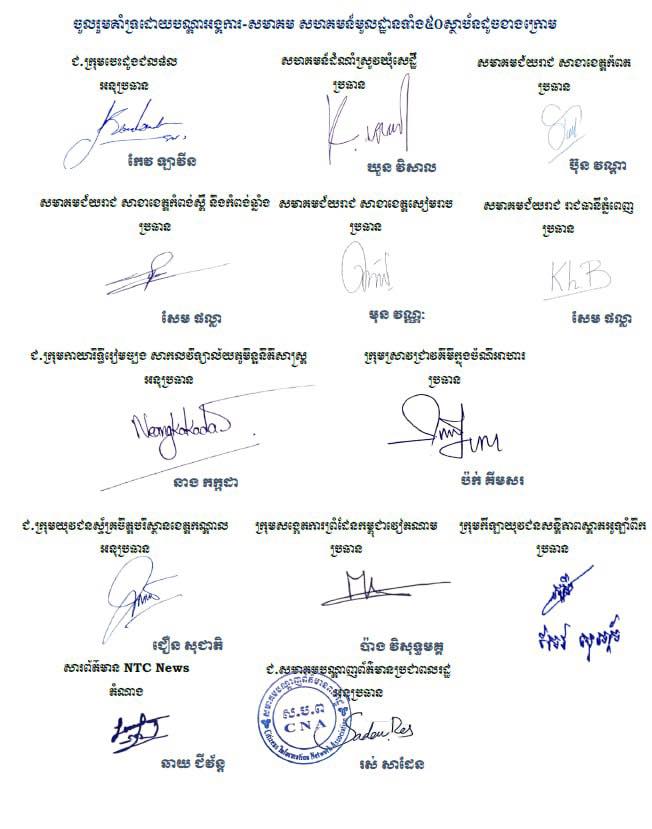 ចូលរួមគាំទ្រដោយបណ្តាអង្គការ-សមាគម សហគមន៍មូលដ្ឋានទាំង៥០ស្ថាប័នដូចខាងក្រោម
ជ.ក្រុមបេះដូងជលផល
អនុប្រធាន
កែវ ឡាវីន
សហគមន៍ដំណាំស្រូវឃុំសេដ្ឋី
ប្រធាន
ឃួន វិសាល
សមាគមជ័យរាជ សាខាខេត្តកំពត
ប្រធាន
ប៊ុន វណ្ណា
សមាគមជ័យរាជ សាខាខេត្តកំពង់ស្ពឺ និងកំពង់ឆ្នាំង
ប្រធាន
សែម ផល្លា
សមាគមជ័យរាជ សាខាខេត្តសៀមរាប
ប្រធាន
មុន វណ្ណៈ
សមាគមជ័យរាជ រាជធានីភ្នំពេញ
ប្រធាន
Kh B
សែម ផល្លា
ជ.ក្រុមកាយារិទ្ធិរៀមច្បង សាកលវិទ្យាល័យភូមិន្ទនីតិសាស្ត្រ
អនុប្រធាន
Neangkakada
នាង កក្កដា
ក្រុមស្រាវជ្រាវគីមីក្នុងចំណីអាហារ
ប្រធាន
ប៉ក់ គឹមសរ
ជ.ក្រុមយុវជនស្ម័គ្រចិត្តបរិស្ថានខេត្តកណ្តាល
អនុប្រធាន
ជឿន សុជាតិ
ក្រុមសង្កេតការព្រំដែនកម្ពុជាវៀតណាម
ប្រធាន
ប៉ាង វិសុទ្ធមគ្គ
ក្រុមកីឡាយុវជនសន្តិភាពស្តាតអូឡាំពិក
ប្រធាន
សារព័ត៌មាន NTC News
តំណាង
ឆាយ ជីវ័ន្ត
ជ.សមាគមបណ្តាញព័ត៌មានប្រជាពលរដ្ឋ
អនុប្រធាន
ស.ប.ព
CNA
Citizens Information Network Association
Saden.Res
រស់ សាដែន